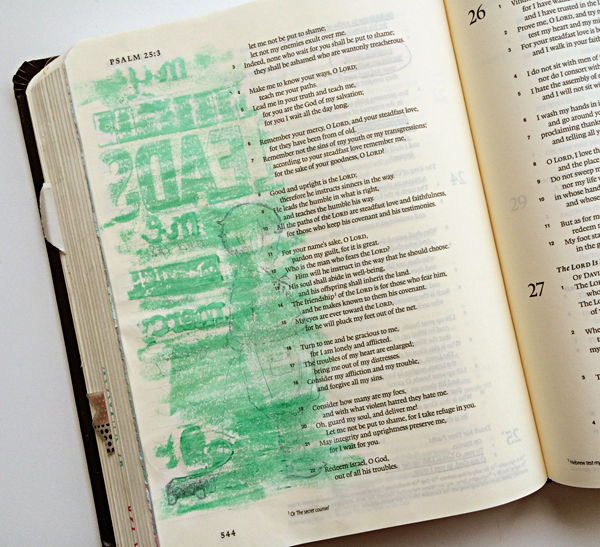 PSALM 25:3
let me not be put to shame;
let not my enemies exult over me.
3 Indeed, none who wait for you shall be put to shame;
they shall be ashamed who are wantonly treacherous.
4 Make me to know your ways, O LORD;
teach me your paths.
5 Lead me in your truth and teach me,
for you are the God of my salvation;
for you I wait all the day long.
6 Remember your mercy, O LORD, and your steadfast love,
for they have been from of old.
7 Remember not the sins of my youth or my transgressions;
according to your steadfast love remember me,
for the sake of your goodness, O LORD!
8 Good and upright is the LORD;
therefore he instructs sinners in the way.
9 He leads the humble in what is right,
and teaches the humble his way.
10 All the paths of the LORD are steadfast love and faithfulness,
for those who keep his covenant and his testimonies.
11 For your name's sake, O LORD,
pardon my guilt, for it is great.
12 Who is the man who fears the LORD?
Him will he instruct in the way that he should choose.
13 His soul shall abide in well-being,
and his offspring shall inherit the land.
14 The friendship¹ of the LORD is for those who fear him,
and he makes known to them his covenant.
15 My eyes are ever toward the LORD,
for he will pluck my feet out of the net.
16 Turn to me and be gracious to me,
for I am lonely and afflicted.
17 The troubles of my heart are enlarged;
bring me out of my distresses.
18 Consider my affliction and my trouble,
and forgive all my sins.
19 Consider how many are my foes,
and with what violent hatred they hate me.
20 Oh, guard my soul, and deliver me!
Let me not be put to shame, for I take refuge in you.
21 May integrity and uprightness preserve me,
for I wait for you.
22 Redeem Israel, O God,
out of all his troubles.
¹ Or The secret counsel
544
my
LEADS
me
26
for I have
and I have trusted in the
2 Prove me, O LORD, and try
test my heart and my
3 For your steadfast love is
and I walk in your
4 I do not sit with men of
nor do I consort with
5 I hate the assembly of
and I will not sit
6 I wash my hands in
and go around
7 proclaiming
and telling all
8 O LORD, I love
and the place
9 Do not sweep
nor my life
10 in whose
and whose
11 But as for
redeem
12 My foot
in the
The LORD Is
27
OF
1 The LORD
The
2
3
4